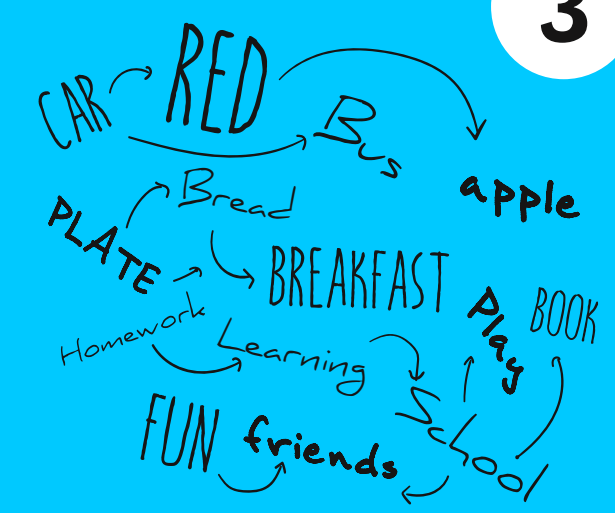 3
CAR
RED
Bus
apple
Bread
PLATE
BREAKFAST
Play
BOOK
Homework
Learning
School
FUN
friends